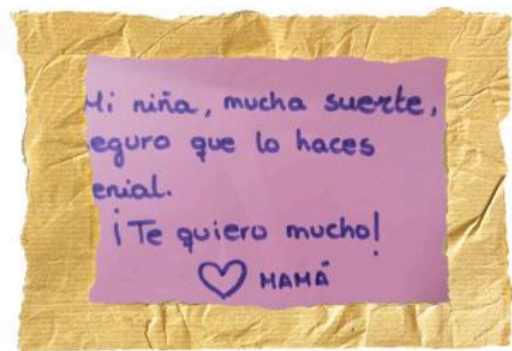 Mi niña, mucha suerte,
eguro que lo haces
enial.
¡Te quiero mucho!
♡ MAMÁ